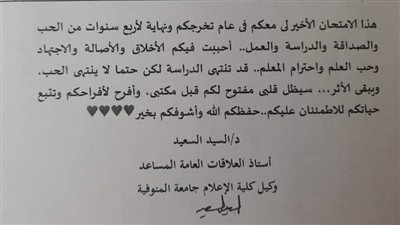 هذا الامتحان الأخير لى معكم فى عام تخرجكم ونهاية لأربع سنوات من الحب
والصداقة والدراسة والعمل.. أحببت فيكم الأخلاق والأصالة والاجتهاد
وحب العلم واحترام المعلم.. قد تنتهى الدراسة لكن حتما لا ينتهى الحب،
ويبقى الأثر... سيظل قلبى مفتوح لكم قبل مكتبى، وأفرح لأفراحكم وتتبع
حياتكم للاطمئنان عليكم..حفظكم الله وأشوفكم بخير♥♥♥♥
د/السيد السعيد
أستاذ العلاقات العامة المساعد
وكيل كلية الإعلام جامعة المنوفية